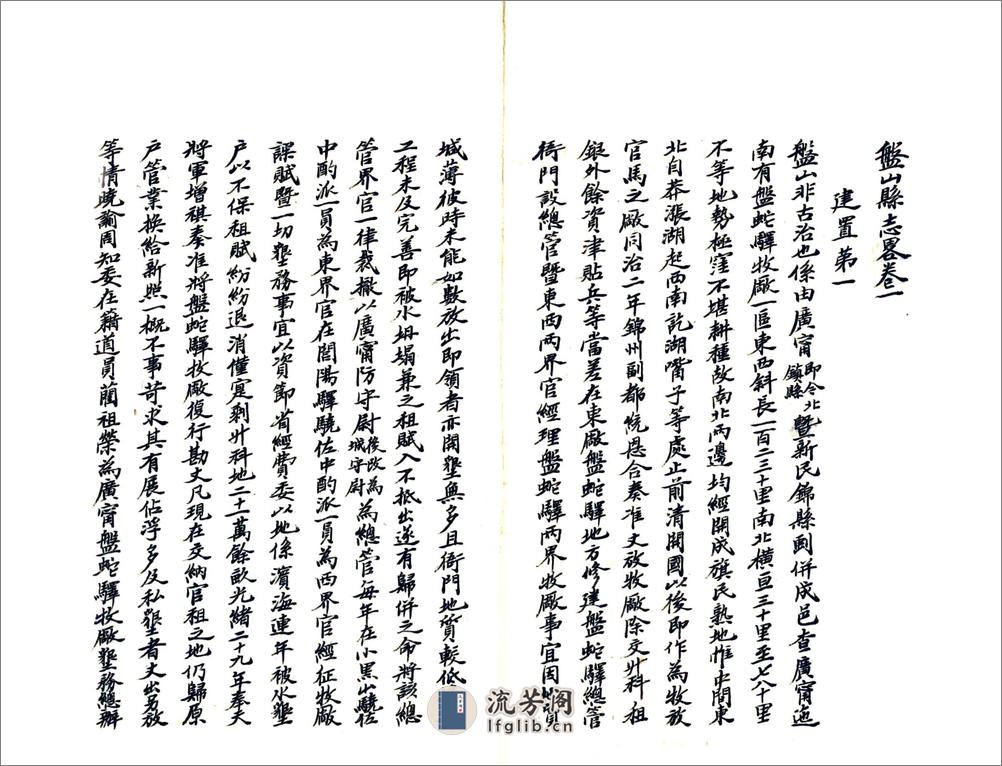 盤山縣志畧卷一
建置第一
盤山非古治也係由廣甯即今北鎮縣暨新民錦縣劃併成邑查廣甯迤
南有盤蛇驛牧廠一區東西斜長一百二三十里南北橫亘三十里至七八十里
不等地勢極窪不堪耕種故南北兩邊均經開成旗民熟地惟中間東
北自莽漲湖起西南訖湖嘴子等處止前清開國以後即作為牧放
官馬之廠同治二年錦州副都統恩合奏准丈放牧廠除交升科租
銀外餘資津貼兵等當差在東廠盤蛇驛地方修建盤蛇驛總管
衙門設總管暨東西兩界官經理盤蛇驛兩界牧廠事宜因地質
城薄彼時未能如數放出即領者亦開墾無多且衙門地質較低
工程未及完善即被水坍塌兼之租賦入不抵出遂有歸併之命將該總
管界官一律裁撤以廣甯防守尉後改為城守尉為總管每年在小黑山驍佐
中酌派一員為東界官在閭陽驛驍佐中酌派一員為西界官經征牧廠
課賦暨一切墾務事宜以資節省經費委以地係濱海連年被水墾
户以不保租賦紛紛退消僅寔剩升科地二十一萬餘畝光緒二十九年奉天
將軍增祺奏准將盤蛇驛牧廠復行勘丈凡現在交納官租之地仍歸原
户管業換給新照一概不事苛求其有展佔浮多及私墾者丈出另放
等情曉諭周知委在籍道員藺祖榮為廣甯盤蛇驛牧廠墾務總辦
流芳阁
lfglib.cn